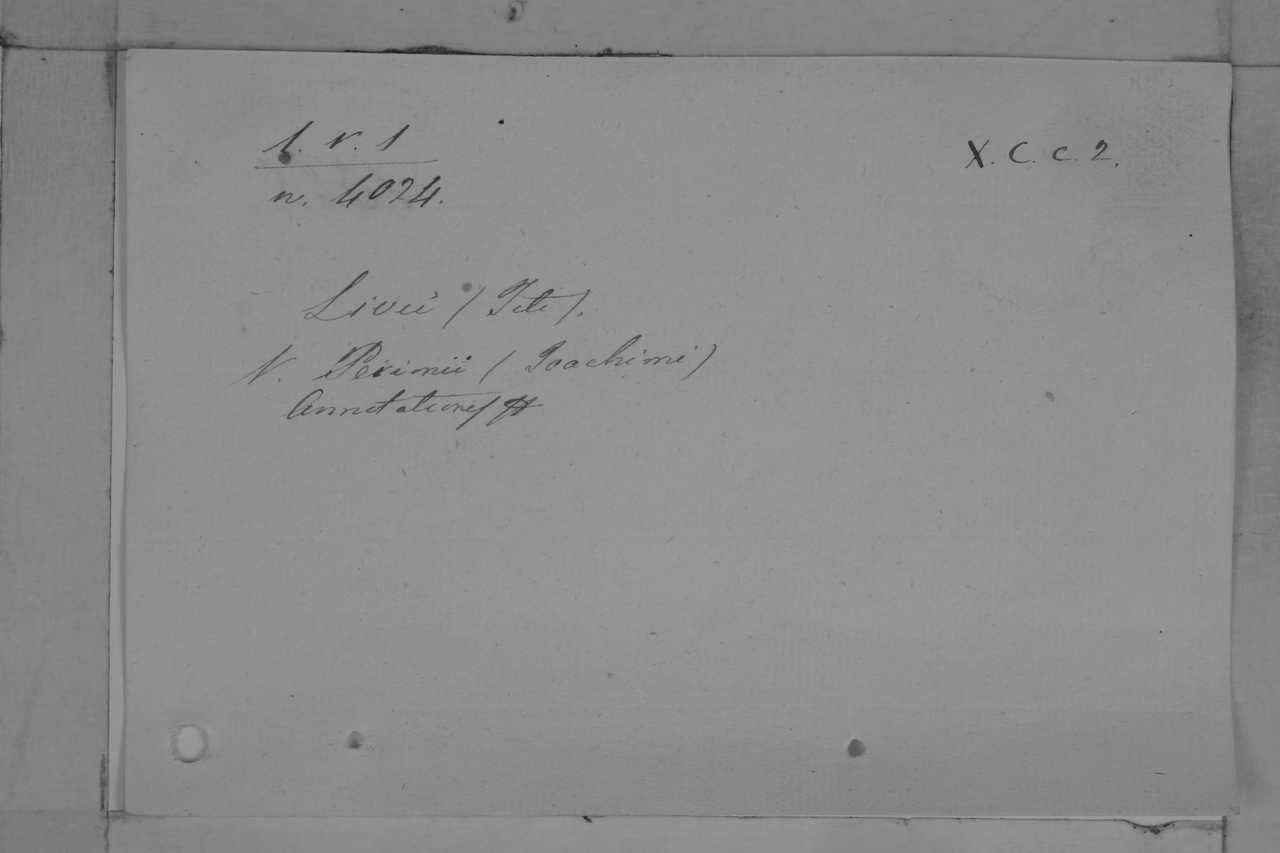 1. V. 1
X. C. c. 2.
n. 4024.
Livii (Titi).
V. Perionii (Joachimi)
Annotationes